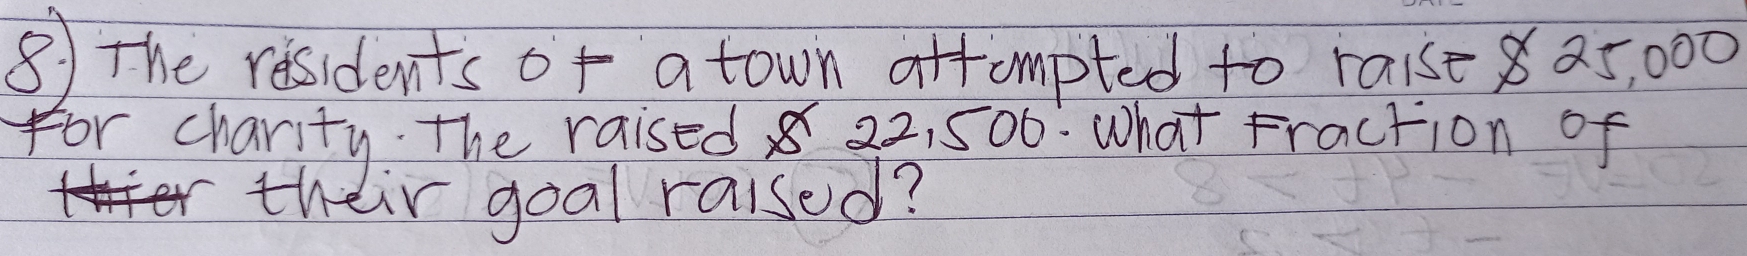 8.) The residents of a town attempted to raise $ 25,000
For charity. The raised $ 22,500. What Fraction of
their goal raised?